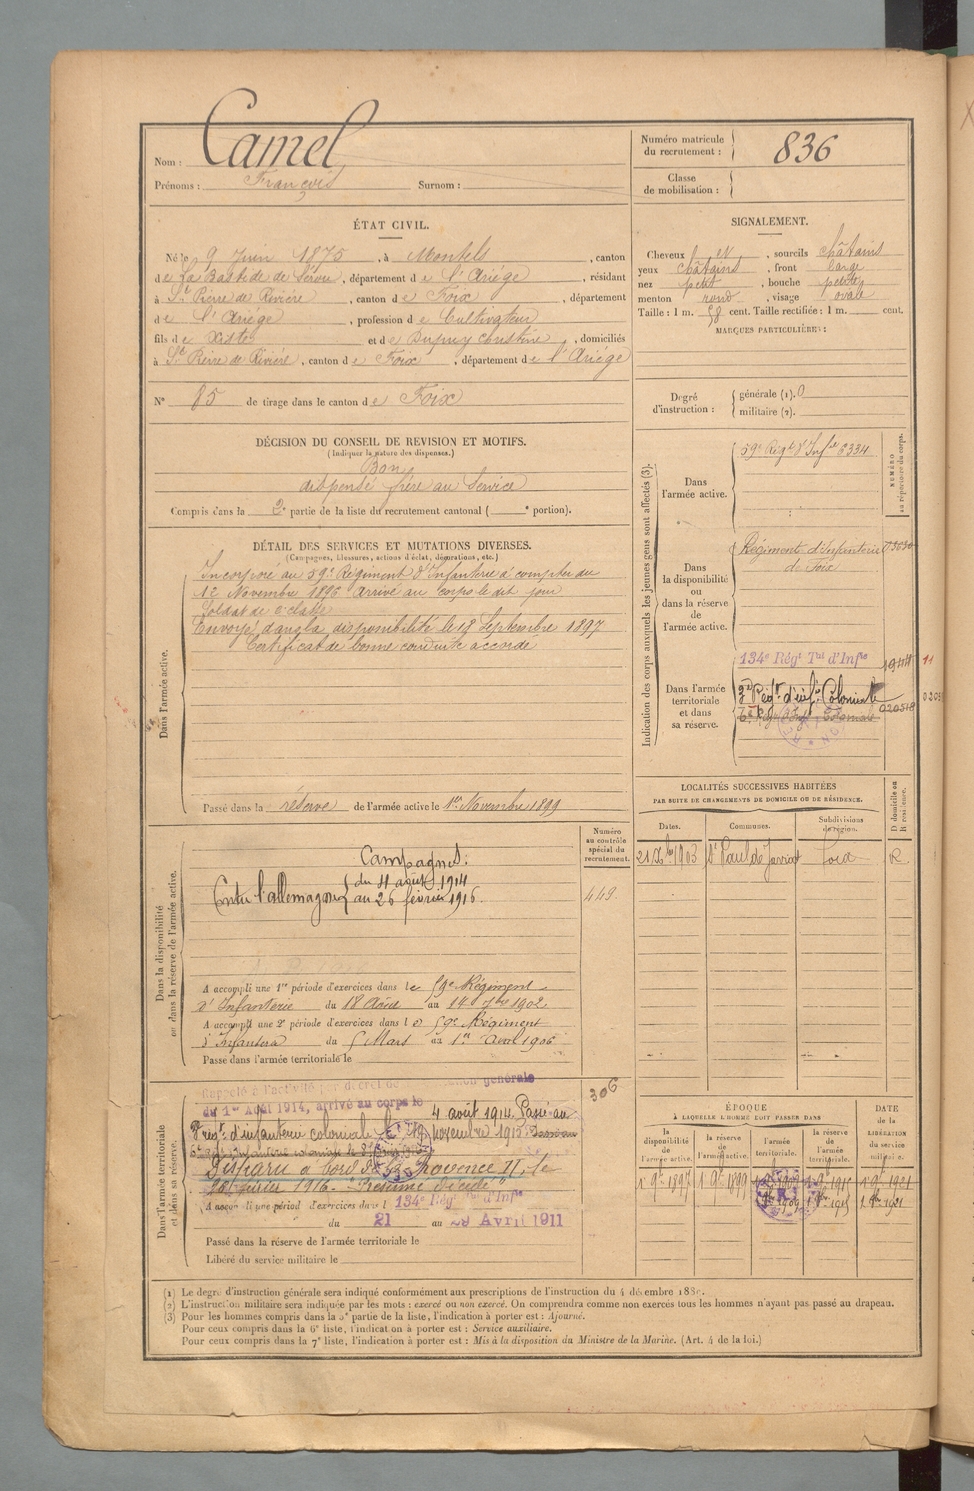 Nom : Camel
Prénoms : François Surnom :
Numéro matricule du recrutement : 836
Classe de mobilisation :
ÉTAT CIVIL.
Né le 9 Juin 1875, à Montels, canton
de La Bastide de Sérou, département de l'Ariége, résidant
à St Pierre de Rivière, canton de Foix, département
de l'Ariége, profession de Cultivateur
fils de Xiste et de Dupuy Christine, domiciliés
à St Pierre de Rivière, canton de Foix, département de l'Ariége
N° 85 de tirage dans le canton de Foix
DÉCISION DU CONSEIL DE REVISION ET MOTIFS.
(Indiquer la nature des dispenses.)
Bon
dispensé frère au Service
Compris dans la 2e partie de la liste du recrutement cantonal ( e portion).
DÉTAIL DES SERVICES ET MUTATIONS DIVERSES.
(Campagnes, blessures, actions d'éclat, décorations, etc.)
Dans l'armée active.
Incorporé au 59e Régiment d'Infanterie à compter du
12 Novembre 1896 arrivé au corps le dit jour
Soldat de 2e classe
Envoyé dans la disponibilité le 18 Septembre 1897
Certificat de bonne conduite accordé
Passé dans la réserve de l'armée active le 1er Novembre 1899
Dans la disponibilité
ou dans la réserve de l'armée active.
Numéro
au contrôle
spécial du
recrutement.
449
Campagnes :
Contre l'allemagne { du 4 août 1914
au 26 février 1916.
A accompli une 1re période d'exercices dans le 59e Régiment
d'Infanterie du 18 Août au 14 7bre 1902
A accompli une 2e période d'exercices dans le 59e Régiment
d'Infanterie du 5 Mars au 1er Avril 1906
Passé dans l'armée territoriale le
Dans l'armée territoriale
et dans sa réserve.
306
Rappelé à l'activité par décret de générale
du 1er Août 1914, arrivé au corps le 4 août 1914. Passé au
3e régt d'infanterie coloniale le novembre 1915
Disparu à bord de la Provence II, le
26 février 1916. "Présumé décédé"
A accompli une période d'exercices dans l 134e Régt Tal d'Infie
du 21 au 29 Avril 1911
Passé dans la réserve de l'armée territoriale le
Libéré du service militaire le
SIGNALEMENT.
Cheveux et, sourcils châtains
yeux châtains, front large
nez petit, bouche petite
menton rond, visage ovale
Taille : 1 m. 58 cent. Taille rectifiée : 1 m. cent.
MARQUES PARTICULIÈRES :
Degré
d'instruction :
générale (1). 0
militaire (2).
Indication des corps auxquels les jeunes gens sont affectés (3).
NUMÉRO
au répertoire du corps.
Dans
l'armée active.
59e Régt d'Infie 6334
Dans
la disponibilité
ou dans la réserve
de
l'armée active.
Régiment d'Infanterie
de Foix
Dans l'armée
territoriale
et dans
sa réserve.
134e Régt Tal d'Infie
3e Régt d'inf. Coloniale
LOCALITÉS SUCCESSIVES HABITÉES
PAR SUITE DE CHANGEMENTS DE DOMICILE OU DE RÉSIDENCE.
Dates. Communes. Subdivisions de région. D domicile ou R résidence.
21 Xbre 1903 St Paul de Jarrat Foix R.
ÉPOQUE
À LAQUELLE L'HOMME DOIT PASSER DANS
DATE
DE LA
LIBÉRATION
du service
militaire.
la disponibilité de l'armée active. la réserve de l'armée active. l'armée territoriale. la réserve de l'armée territoriale.
1. 9e 1897 1. 9e 1899 1. 9e 1909 1. 9e 1915 1. 9e 1921
(1) Le degré d'instruction générale sera indiqué conformément aux prescriptions de l'instruction du 4 décembre 1889.
(2) L'instruction militaire sera indiquée par les mots : exercé ou non exercé. On comprendra comme non exercés tous les hommes n'ayant pas passé au drapeau.
(3) Pour les hommes compris dans la 5e partie de la liste, l'indication à porter est : Ajourné.
Pour ceux compris dans la 6e liste, l'indication à porter est : Service auxiliaire.
Pour ceux compris dans la 7e liste, l'indication à porter est : Mis à la disposition du Ministre de la Marine. (Art. 4 de la loi.)